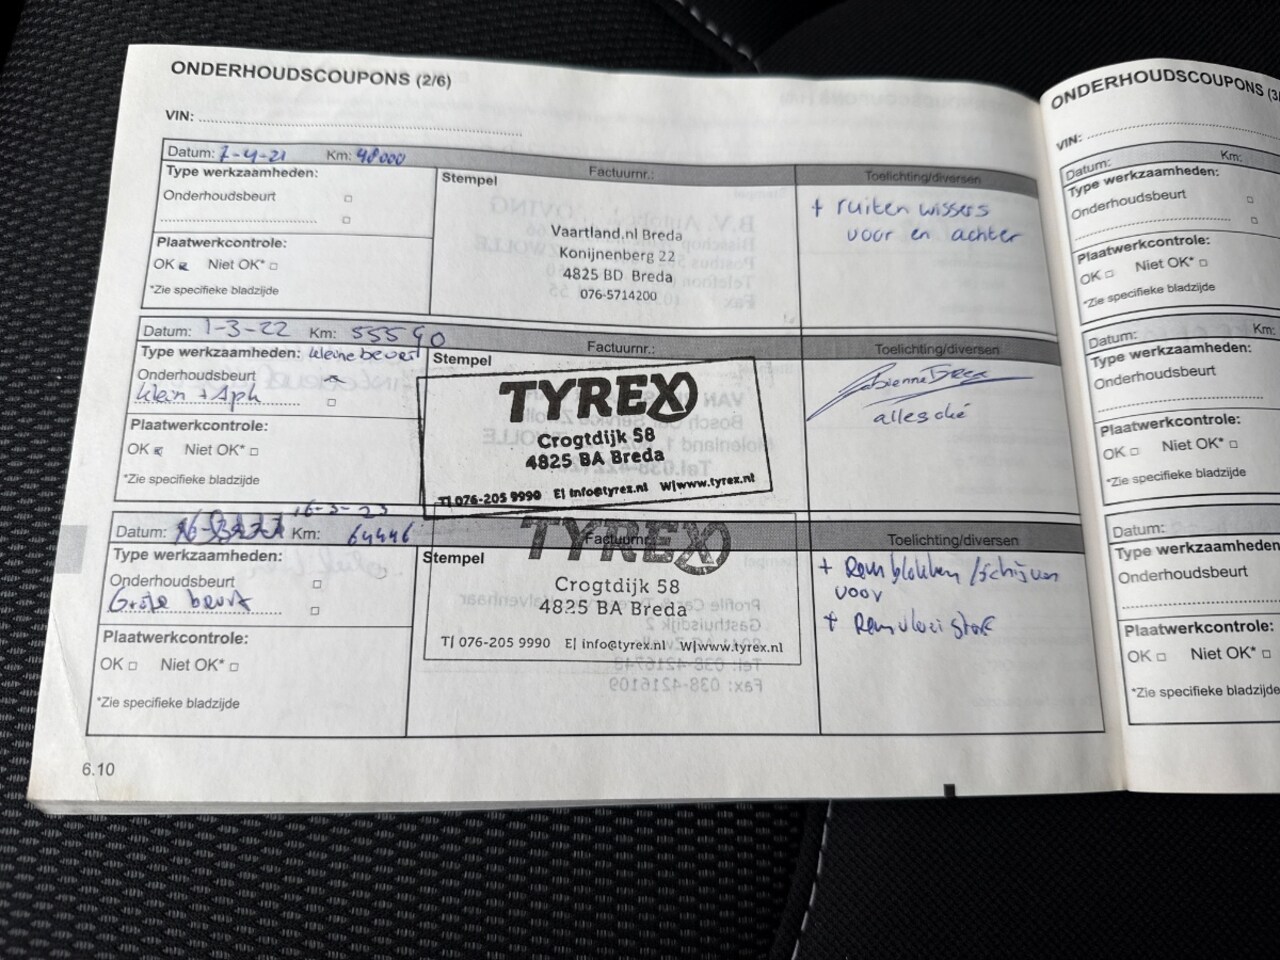 ONDERHOUDSCOUPONS (2/6)
VIN:
Datum: 7-4-21 Km: 48000
Factuurnr.:
Toelichting/diversen
Type werkzaamheden:
Stempel
Onderhoudsbeurt
Plaatwerkcontrole:
OK Niet OK*
*Zie specifieke bladzijde
Vaartland.nl Breda
Konijnenberg 22
4825 BD Breda
076-5714200
+ ruitenwissers
voor en achter
Datum: 1-3-22 Km: 55590
Factuurnr.:
Toelichting/diversen
Type werkzaamheden: kleine beurt
Stempel
Onderhoudsbeurt
klein + Apk
Plaatwerkcontrole:
OK Niet OK*
*Zie specifieke bladzijde
TYREX
Crogtdijk 58
4825 BA Breda
T| 076-205 9990 E| info@tyrex.nl W|www.tyrex.nl
alles oké
16-3-23
Datum: Km: 64446
Factuurnr.:
Toelichting/diversen
Type werkzaamheden:
Stempel
Onderhoudsbeurt
Grote beurt
Plaatwerkcontrole:
OK Niet OK*
*Zie specifieke bladzijde
TYREX
Crogtdijk 58
4825 BA Breda
T| 076-205 9990 E| info@tyrex.nl W|www.tyrex.nl
+ Remblokken / schijven
voor
+ Remvloeistof
6.10
ONDERHOUDSCOUPONS (3/
VIN:
Datum: Km:
Type werkzaamheden:
Onderhoudsbeurt
Plaatwerkcontrole:
OK Niet OK*
*Zie specifieke bladzijde
Datum: Km:
Type werkzaamheden:
Onderhoudsbeurt
Plaatwerkcontrole:
OK Niet OK*
*Zie specifieke bladzijde
Datum:
Type werkzaamheden
Onderhoudsbeurt
Plaatwerkcontrole:
OK Niet OK*
*Zie specifieke bladzijde